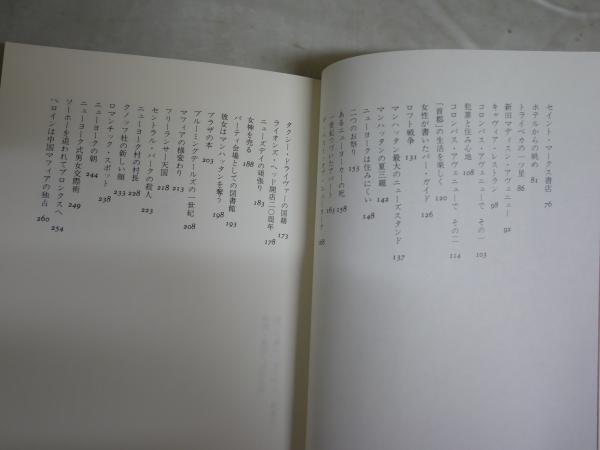 セイント・マークス書店 76
ホテルからの眺め 81
トライベカの一つ星 86
新田マディスン・アヴェニュー 92
キャヴィア・レストラン 98
コロンバス・アヴェニューで その一 103
犯罪と住み心地 108
コロンバス・アヴェニューで その二 114
「首都」の生活を楽しく 120
女性が書いたバー・ガイド 126
ロフト戦争 131
マンハッタン最大のニューズスタンド 137
マンハッタンの夏三題 142
ニューヨークは住みにくい 148
二つのお祭り 153
あるニューヨーカーの死 158
一世紀つづいたアパート 163
168
タクシー・ドライヴァーの国籍 173
ライオンズ・ヘッド開店二〇周年 178
ニューズデイの頑張り 183
女神を売る 188
パーティ会場としての図書館 193
彼女はマンハッタンを奪う 198
プラザの本 203
ブルーミングデールズの一世紀 208
マフィアの様変わり 213
フリーランサー天国 218
セントラル・パークの殺人 223
ニューヨーク村の村長 228
クノップ社の新しい顔 233
ロマンチック・スポット 238
ニューヨークの朝 244
ニューヨーク式男女交際術 249
ソーホーを追われてブロンクスへ 254
ヘロインは中国マフィアの独占 260